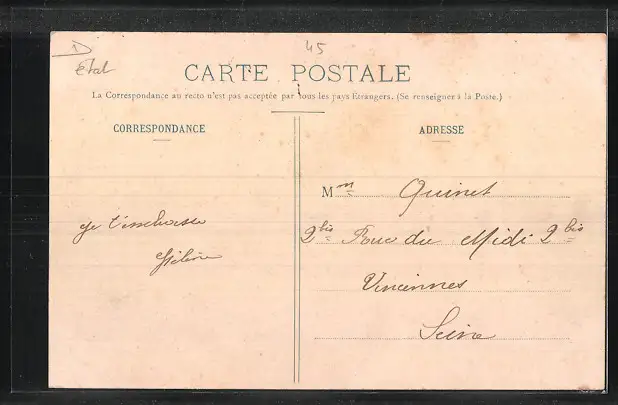 45
Etat
CARTE POSTALE
La Correspondance au recto n'est pas acceptée par tous les pays Etrangers. (Se renseigner à la Poste.)
CORRESPONDANCE
ADRESSE
Mm Quinet
2bis Rue du Midi 2bis
Vincennes
Seine
je t'embrasse
Hélène